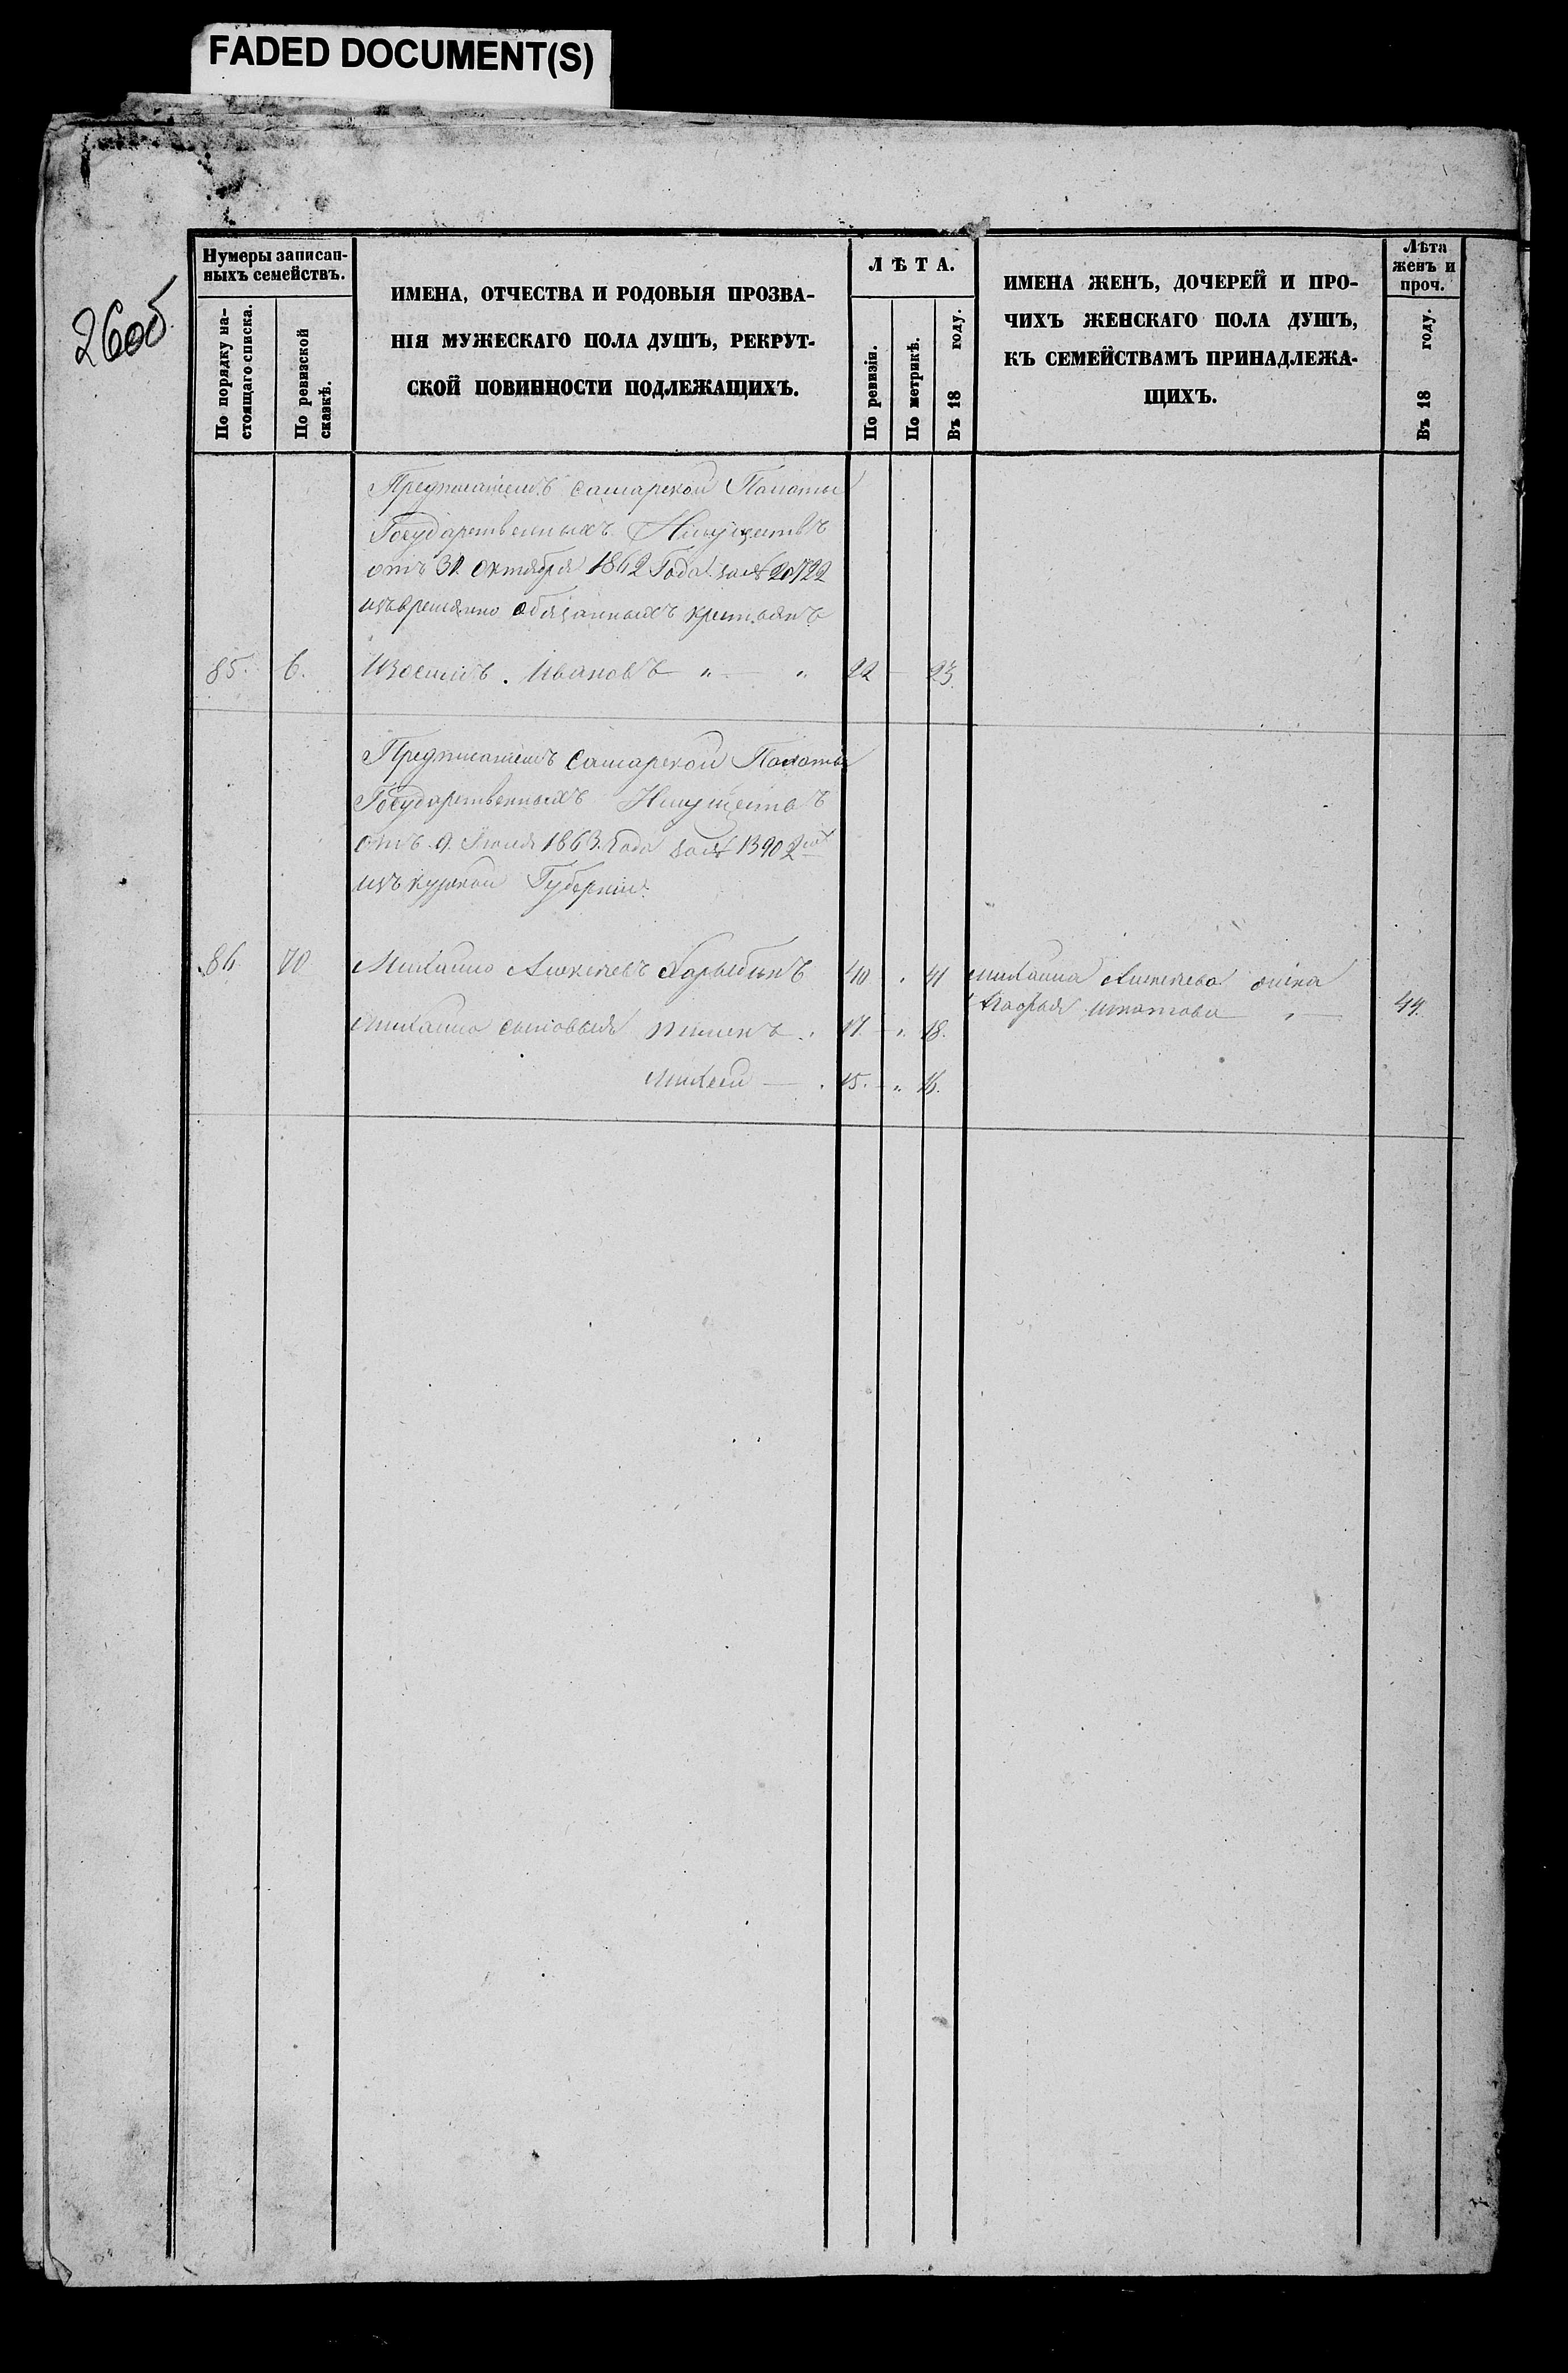 FADED DOCUMENT(S)
260об
Нумеры записан-
ныхъ семействъ.
По порядку на-
стоящаго списка.
По ревизской
сказкѣ.
ИМЕНА, ОТЧЕСТВА И РОДОВЫЯ ПРОЗВА-
НІЯ МУЖЕСКАГО ПОЛА ДУШЪ, РЕКРУТ-
СКОЙ ПОВИННОСТИ ПОДЛЕЖАЩИХЪ.
ЛѢТА.
По ревизіи.
По метрикѣ.
Въ 18 году.
ИМЕНА ЖЕНЪ, ДОЧЕРЕЙ И ПРО-
ЧИХЪ ЖЕНСКАГО ПОЛА ДУШЪ,
КЪ СЕМЕЙСТВАМЪ ПРИНАДЛЕЖА-
ЩИХЪ.
Лѣта
женъ и
проч.
Въ 18 году.
Предписаніемъ Самарской Палаты
Государственныхъ Имуществъ
отъ 31 октября 1862 Года за № 20722
изъ временно обязанныхъ крестьянъ
85. 6. Ивановъ " — " 22 — 23.
Предписаніемъ Самарской Палаты
Государственныхъ Имуществъ
отъ 9. Іюля 1863. Года за № 13902
изъ курской Губерніи.
86. 70 Михайло 40 " 41 Михайла жена
44.
Михайло сыновья 17. " 18.
Михей — 15. " 16.